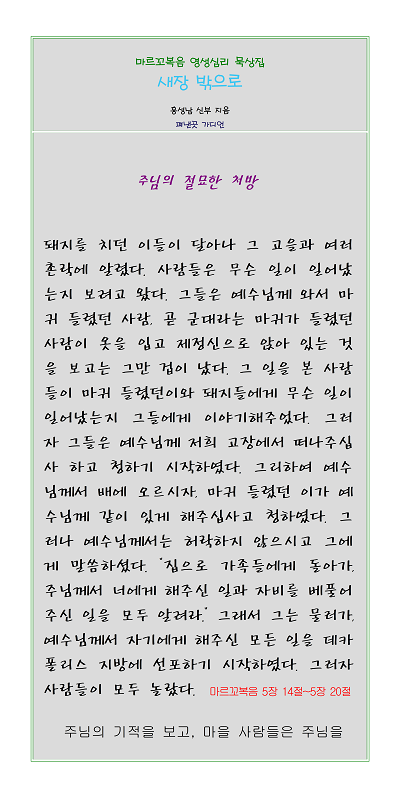 마르꼬복음 영성심리 묵상집
새장 밖으로
홍성남 신부 지음
펴낸곳 가디언
주님의 절묘한 처방
돼지를 치던 이들이 달아나 그 고을과 여러
촌락에 알렸다. 사람들은 무슨 일이 일어났
는지 보려고 왔다. 그들은 예수님께 와서 마
귀 들렸던 사람, 곧 군대라는 마귀가 들렸던
사람이 옷을 입고 제정신으로 앉아 있는 것
을 보고는 그만 겁이 났다. 그 일을 본 사람
들이 마귀 들렸던이와 돼지들에게 무슨 일이
일어났는지 그들에게 이야기해주었다. 그러
자 그들은 예수님께 저희 고장에서 떠나주십
사 하고 청하기 시작하였다. 그리하여 예수
님께서 배에 오르시자, 마귀 들렸던 이가 예
수님께 같이 있게 해주십사고 청하였다. 그
러나 예수님께서는 허락하지 않으시고 그에
게 말씀하셨다. "집으로 가족들에게 돌아가,
주님께서 너에게 해주신 일과 자비를 베풀어
주신 일을 모두 알려라." 그래서 그는 물러가,
예수님께서 자기에게 해주신 모든 일을 데카
폴리스 지방에 선포하기 시작하였다. 그러자
사람들이 모두 놀랐다. 마르꼬복음 5장 14절~5장 20절
주님의 기적을 보고, 마을 사람들은 주님을